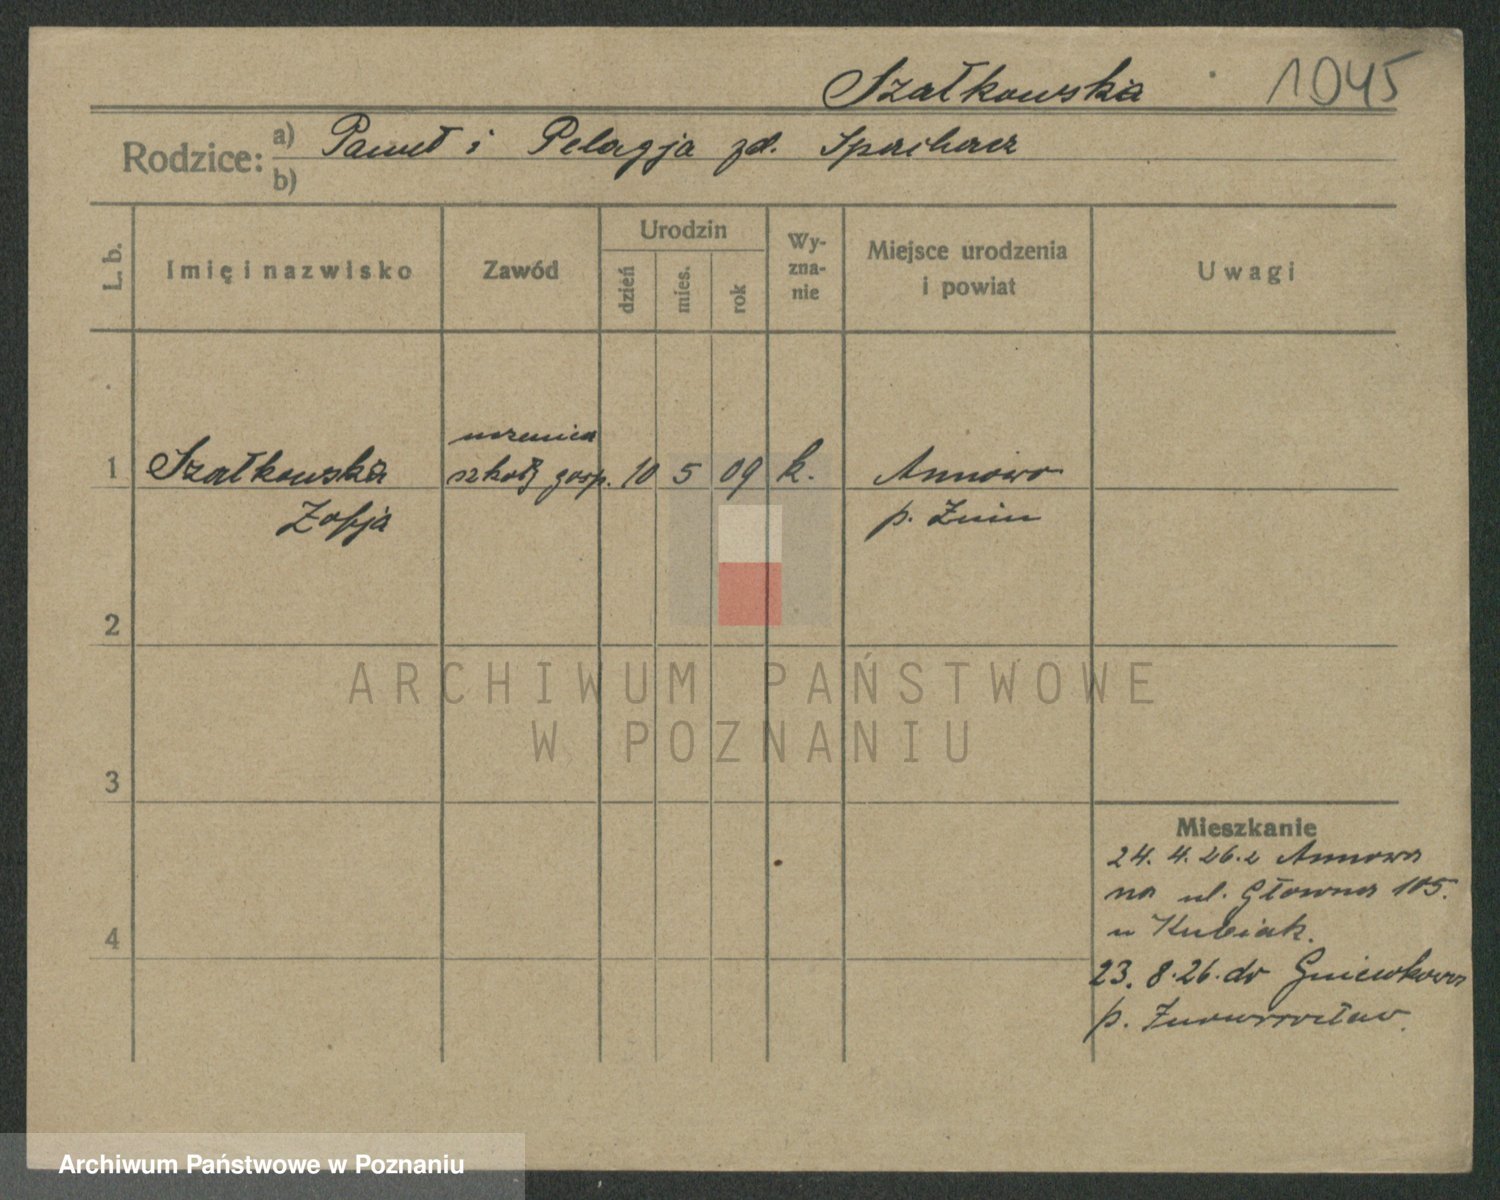 Szałkowska 1045
Rodzice: a) Paweł i Pelagja zd. Spochacz
b)
L. b. Imię i nazwisko Zawód Urodzin dzień mies. rok Wy-zna-nie Miejsce urodzenia i powiat Uwagi
uczenica
1 Szałkowska szkoły gosp. 10 5 09 k. Annowo
Zofja p. Żnin
2
ARCHIWUM PAŃSTWOWE
W POZNANIU
3
Mieszkanie
24. 4. 26. z Annowa
na ul. Głowna 105.
4
u Kubiak.
23. 8. 26. do Gniewkowa
p. Inowrocław.
Archiwum Państwowe w Poznaniu